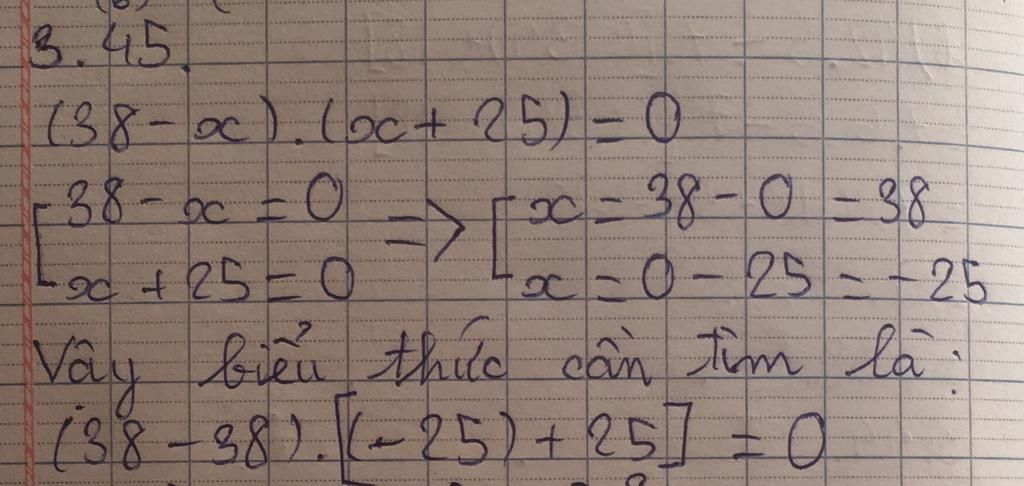 3.45.
(38 - x).(x + 25) = 0
[38 - x = 0 => [x = 38 - 0 = 38
x + 25 = 0 x = 0 - 25 = -25
Vậy biểu thức cần tìm là:
(38 - 38).[(-25) + 25] = 0